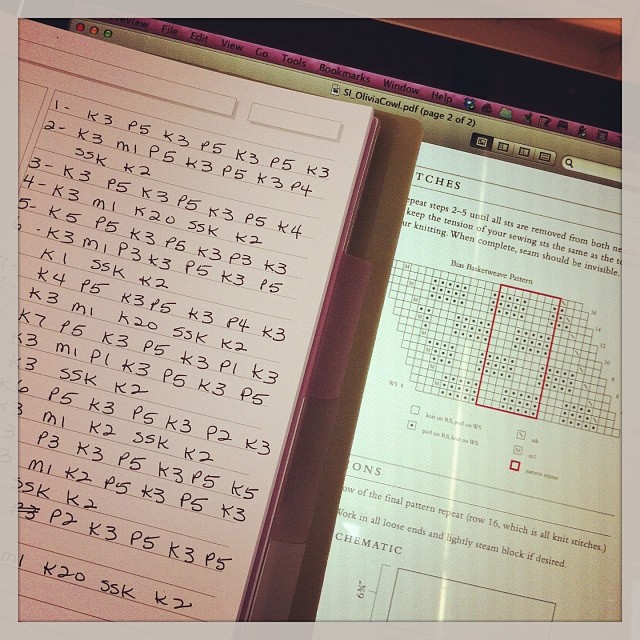 Preview File Edit View Go Tools Bookmarks Window Help
SI_OliviaCowl.pdf (page 2 of 2)
1- K3 P5 K3 P5 K3 P5 K3
2- K3 M1 P5 K3 P5 K3 P4
SSK K2
3- K3 P5 K3 P5 K3 P5 K4
4- K3 M1 K20 SSK K2
5- K5 P5 K3 P5 K3 P3 K3
- K3 M1 P3 K3 P5 K3 P5
K1 SSK K2
K4 P5 K3 P5 K3 P4 K3
K3 M1 K20 SSK K2
K7 P5 K3 P5 K3 P1 K3
K3 M1 P1 K3 P5 K3 P5
K3 SSK K2
P5 K3 P5 K3 P2 K3
M1 K2 SSK K2
P3 K3 P5 K3 P5 K5
M1 K2 P5 K3 P5 K3
SSK K2
P2 K3 P5 K3 P5
K20 SSK K2
TCHES
epeat steps 2–5 until all sts are removed from both ne
keep the tension of your sewing sts the same as the te
ur knitting. When complete, seam should be invisible.
Bias Basketweave Pattern
16
14
12
10
8
6
WS 1
M
knit on RS, purl on WS
purl on RS, knit on WS
ssk
M
m1
pattern repeat
IONS
ow of the final pattern repeat (row 16, which is all knit stitches.)
Work in all loose ends and lightly steam block if desired.
CHEMATIC
6¾"